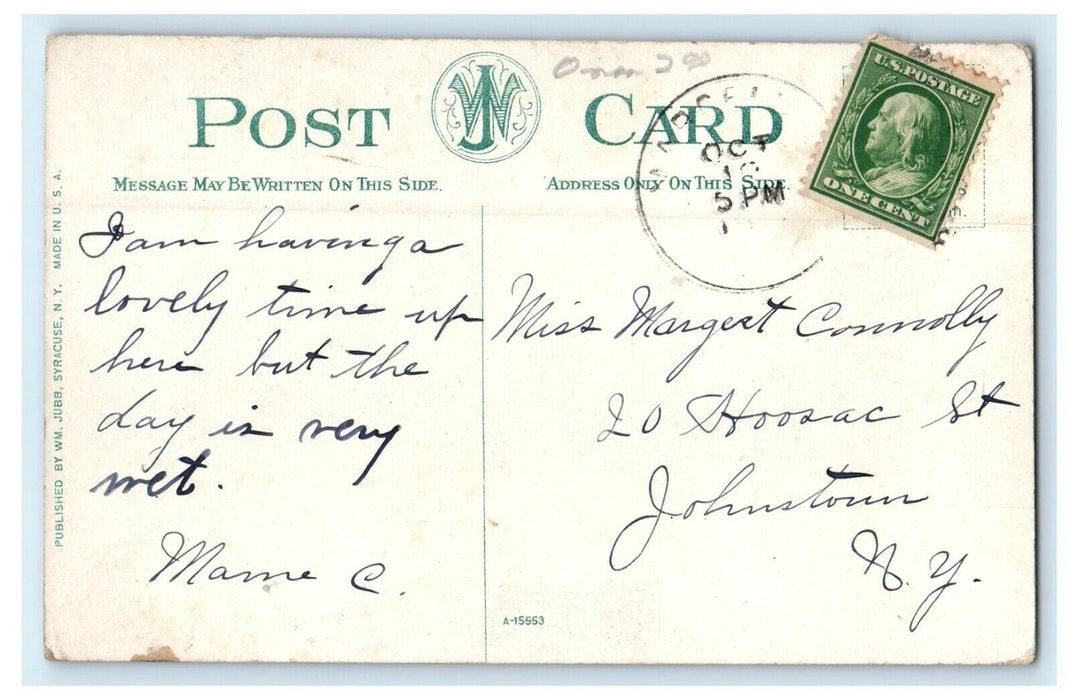 POST CARD
MESSAGE MAY BE WRITTEN ON THIS SIDE.
ADDRESS ONLY ON THIS SIDE.
OCT
5 PM
U.S. POSTAGE
ONE CENT
I am having a
lovely time up
here but the
day is very
wet.
Mame C.
Miss Margert Connolly
20 Hoosac St
Johnstown
N.Y.
A-15553
PUBLISHED BY WM. JUBB, SYRACUSE, N. Y. MADE IN U. S. A.